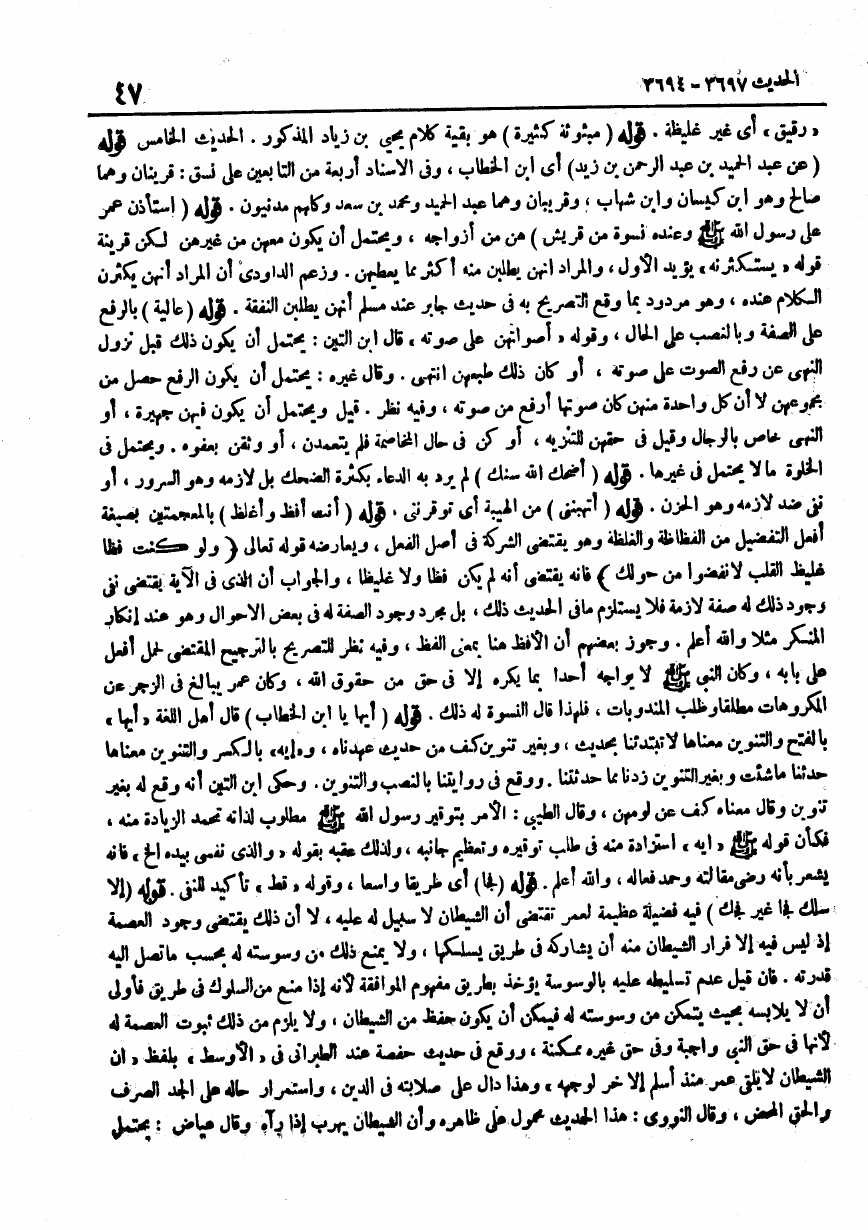 الحديث ٣٦٩٧ - ٣٦٩٤
٤٧
« رقيق » أى غير غليظة . قوله ( مبثوثة كثيرة ) هو بقية كلام يحيى بن زياد المذكور . الحديث الخامس قوله
( عن عبد الحميد بن عبد الرحمن بن زيد) أى ابن الخطاب ، وفى الاسناد أربعة من التابعين على نسق : قرينان وهما
صالح وهو ابن كيسان وابن شهاب ، وقريبان وهما عبد الحميد ومحمد بن سعد وكلهم مدنيون . قوله ( استأذن عمر
على رسول الله ﷺ وعنده نسوة من قريش ) هن من أزواجه ، ويحتمل أن يكون معهن من غيرهن لكن قرينة
قوله « يستكثرنه » يؤيد الأول ، والمراد انهن يطلبن منه أكثر مما يعطيهن . وزعم الداودى أن المراد أنهن يكثرن
الكلام عنده ، وهو مردود بما وقع التصريح به فى حديث جابر عند مسلم أنهن يطلبن النفقة . قوله ( عالية ) بالرفع
على الصفة وبالنصب على الحال ، وقوله « أصواتهن على صوته » قال ابن التين : يحتمل أن يكون ذلك قبل نزول
النهى عن رفع الصوت على صوته ، أو كان ذلك طبعهن انتهى . وقال غيره : يحتمل أن يكون الرفع حصل من
مجموعهن لا أن كل واحدة منهن كان صوتها أرفع من صوته ، وفيه نظر . قيل ويحتمل أن يكون فيهن جهيرة ، أو
النهى خاص بالرجال وقيل فى حقهن للتنزيه ، أو كن فى حال المخاصمة فلم يتعمدن ، أو وثقن بعفوه . ويحتمل فى
الخلوة ما لا يحتمل فى غيرها . قوله ( أضحك الله سنك ) لم يرد به الدعاء بكثرة الضحك بل لازمه وهو السرور ، أو
نفى ضد لازمه وهو الحزن . قوله ( أتهبننى ) من الهيبة أى توقرننى . قوله ( أنت أفظ وأغلظ ) بالمعجمتين بصيغة
أفعل التفضيل من الفظاظة والغلظة وهو يقتضى الشركة فى أصل الفعل ، ويعارضه قوله تعالى ﴿ ولو كنت فظا
غليظ القلب لانفضوا من حولك ﴾ فانه يقتضى أنه لم يكن فظا ولا غليظا ، والجواب أن الذى فى الآية يقتضى نفى
وجود ذلك له صفة لازمة فلا يستلزم ما فى الحديث ذلك ، بل مجرد وجود الصفة له فى بعض الاحوال وهو عند إنكار
المنكر مثلا والله أعلم . وجوز بعضهم أن الأفظ هنا بمعنى الفظ ، وفيه نظر للتصريح بالترجيح المقتضى لحمل أفعل
على بابه ، وكان النبى ﷺ لا يواجه أحدا بما يكره إلا فى حق من حقوق الله ، وكان عمر يبالغ فى الزجر عن
المكروهات مطلقا وطلب المندوبات ، فلهذا قال النسوة له ذلك . قوله ( أيها يا ابن الخطاب ) قال أهل اللغة « أيها »
بالفتح والتنوين معناها لا تبتدئنا بحديث ، وبغير تنوين كف من حديث عهدناه ، و« إيه » بالكسر والتنوين معناها
حدثنا ما شئت وبغير التنوين زدنا مما حدثتنا . ووقع فى روايتنا بالنصب والتنوين . وحكى ابن التين أنه وقع له بغير
تنوين وقال معناه كف عن لومهن ، وقال الطيبى : الأمر بتوقير رسول الله ﷺ مطلوب لذاته تحمد الزيادة منه ،
فكأن قوله ﷺ « ايه » استزادة منه فى طلب توقيره وتعظيم جانبه ، ولذلك عقبه بقوله « والذى نفسى بيده الخ » فانه
يشعر بأنه رضى مقالته وحمد فعاله ، والله أعلم . قوله (فجا) أى طريقا واسعا ، وقوله « قط » تأكيد للنفى . قوله (إلا
سلك فجا غير فجك ) فيه فضيلة عظيمة لعمر تقتضى أن الشيطان لا سبيل له عليه ، لا أن ذلك يقتضى وجود العصمة
إذ ليس فيه إلا فرار الشيطان منه أن يشاركه فى طريق يسلكها ، ولا يمنع ذلك من وسوسته له بحسب ما تصل اليه
قدرته . فان قيل عدم تسليطه عليه بالوسوسة يؤخذ بطريق مفهوم الموافقة لأنه إذا منع من السلوك فى طريق فأولى
أن لا يلابسه بحيث يتمكن من وسوسته له فيمكن أن يكون حفظ من الشيطان ، ولا يلزم من ذلك ثبوت العصمة له
لأنها فى حق النبى واجبة وفى حق غيره ممكنة ، ووقع فى حديث حفصة عند الطبرانى فى « الأوسط » بلفظ « ان
الشيطان لا يلقى عمر منذ أسلم إلا خر لوجهه » وهذا دال على صلابته فى الدين ، واستمرار حاله على الجد الصرف
والحق المحض ، وقال النووى : هذا الحديث محمول على ظاهره وأن الشيطان يهرب إذا رآه وقال عياض : يحتمل